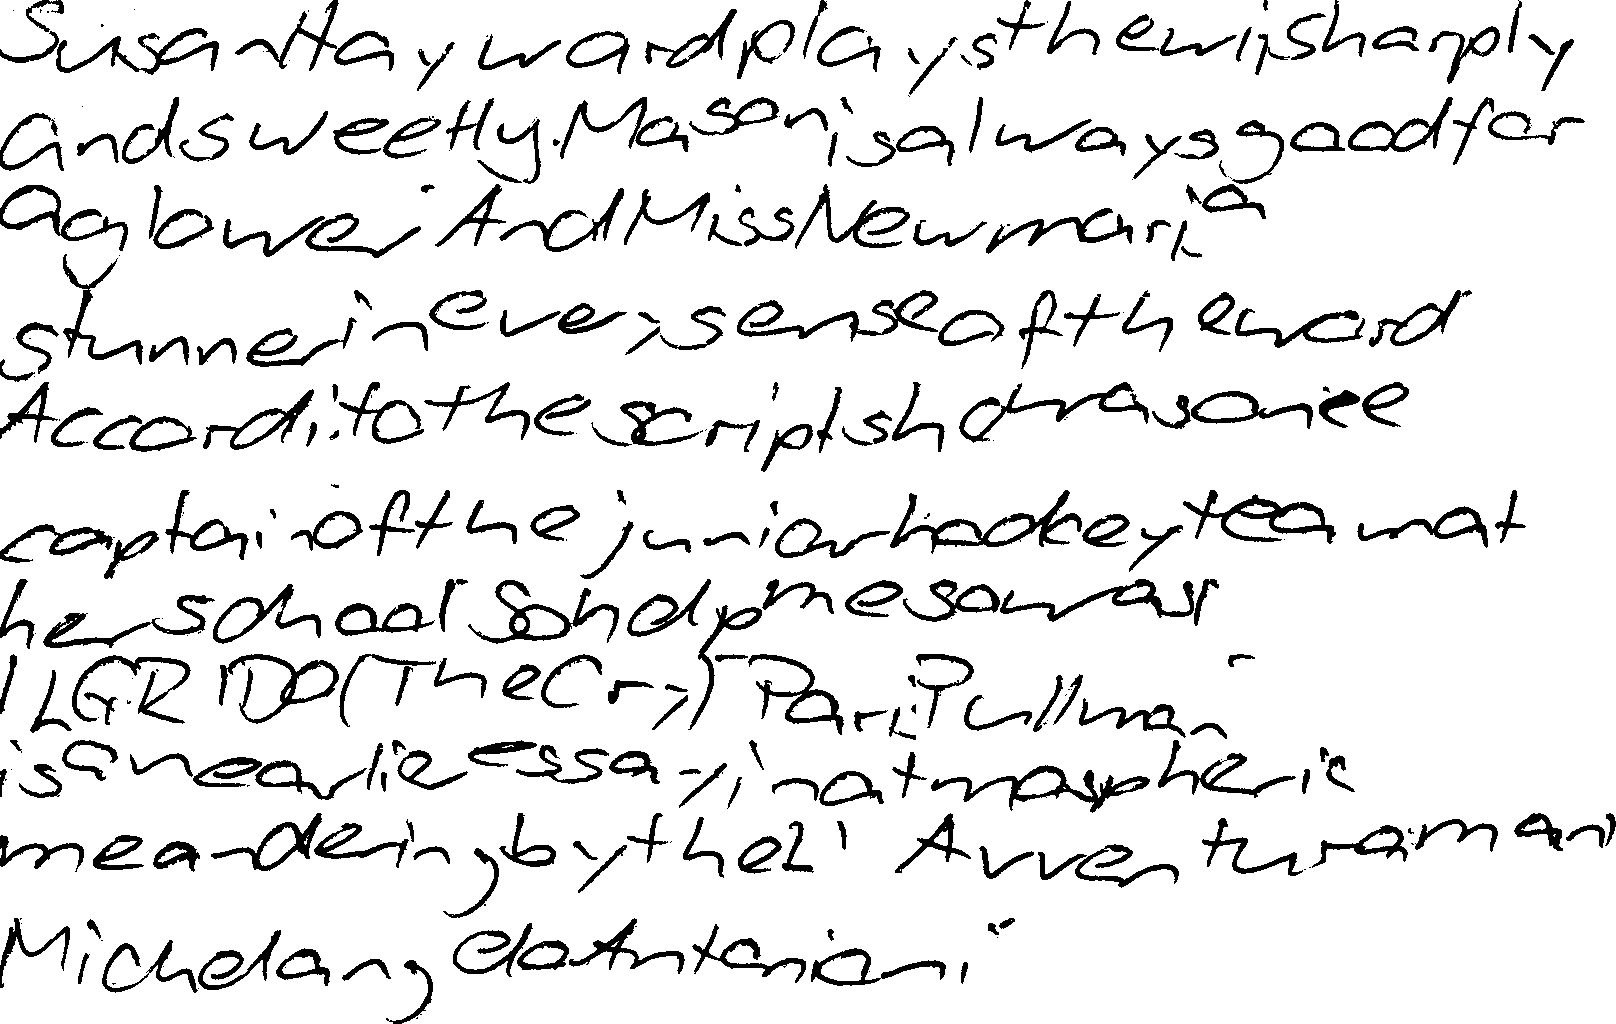 Susan Hayward plays the wife sharply
and sweetly. Mason is always good for
a glower. And Miss Newmar is a
stunner in every sense of the word.
According to the script she was once
captain of the junior hockey team at
her school. So help me so was I.
IL GRIDO (The Cry) Paris Pullman
is an earlier essay in atmospheric
meandering by the L'Avventura man
Michelangelo Antonioni